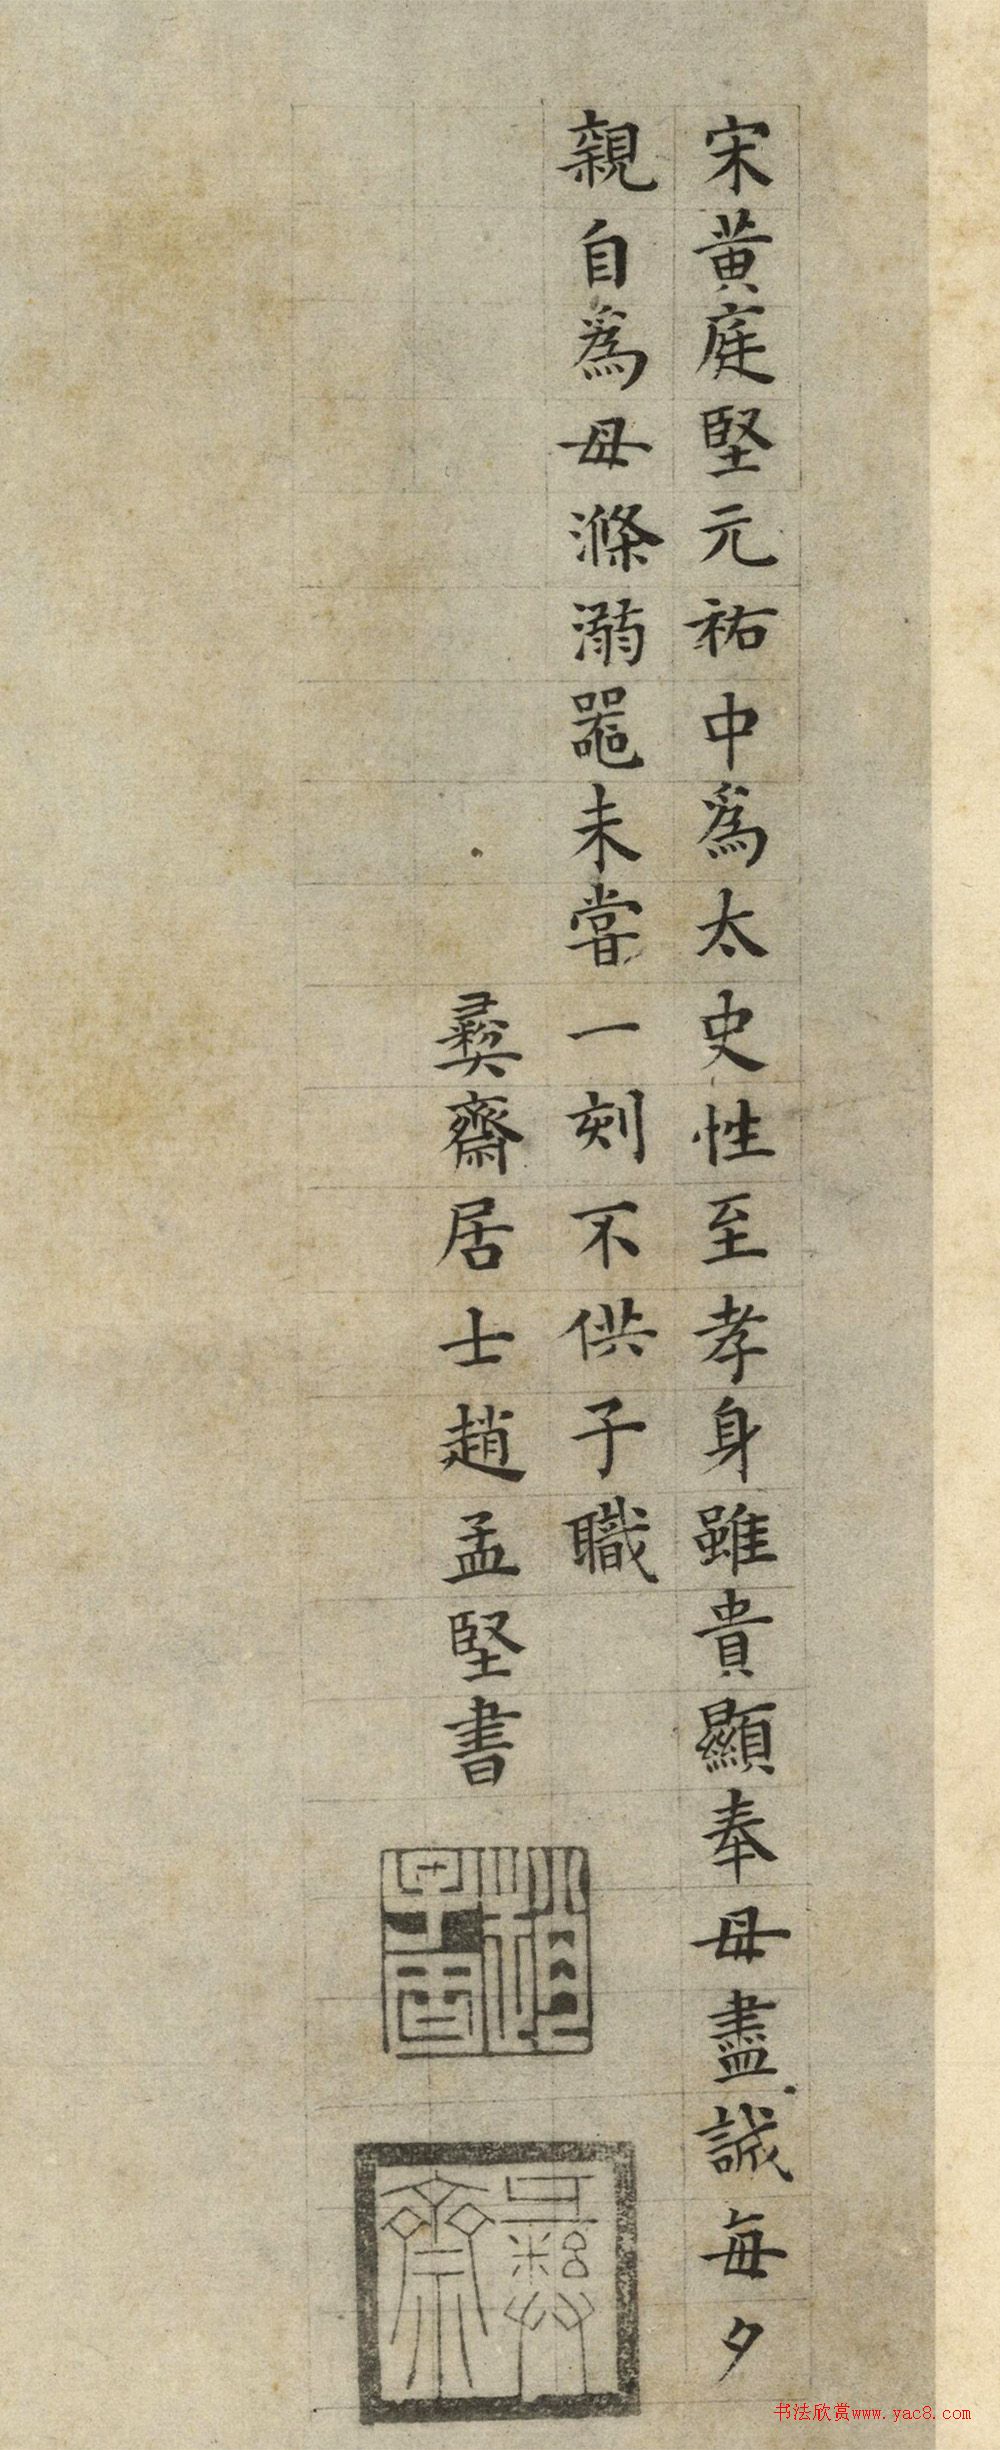 宋黄庭堅元祐中爲太史性至孝身雖貴顯奉母盡誠每夕
親自爲母滌溺噐未嘗一刻不供子職
彜齋居士趙孟堅書
彜齋
书法欣赏www.yac8.com